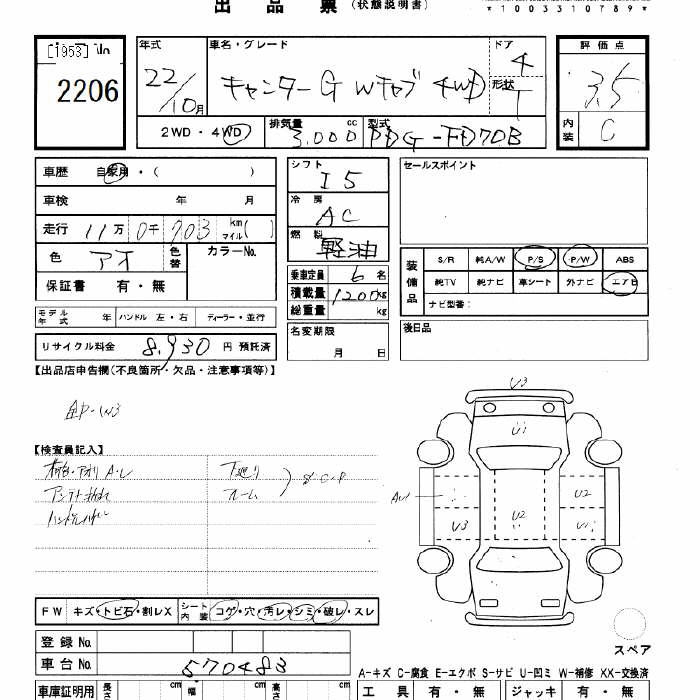 出品票 (状態説明書)
*1003310789*
[1953] No 2206
年式 22/10月
車名・グレード キャンターG Wキャブ 4WD
ドア 4
形状 T
評価点 3.5
内装 C
2WD・4WD
排気量 3.000 cc
型式 PDG-FD70B
車歴 自家用・( )
車検 年 月
走行 11万 0千 703 km マイル( )
色 アオ 色替 カラーNo.
保証書 有・無
シフト I5
冷房 AC
燃料 軽油
乗車定員 6 名
積載量 1200 kg
総重量 kg
セールスポイント
装備品 S/R 純A/W P/S P/W ABS
純TV 純ナビ 革シート 外ナビ エアB
ナビ型番:
モデル年式 年 ハンドル 左・右 ディーラー・並行
名変期限 月 日
後日品
リサイクル料金 8,930 円 預託済
【出品店申告欄(不良箇所・欠品・注意事項等)】
【検査員記入】
荷台・アオリ A・U
下廻り
ルーム
S・C・P
U3
U1
A1
U2
U3
U2
U1
FW キズ・トビ石・割レX シート内装 コゲ・穴・汚レ・シミ・破レ・スレ
スペア
登録 No.
車台 No. 570483
A-キズ C-腐食 E-エクボ S-サビ U-凹ミ W-補修 XX-交換済
車庫証明用 長さ cm 幅 cm 高さ cm
工具 有・無 ジャッキ 有・無